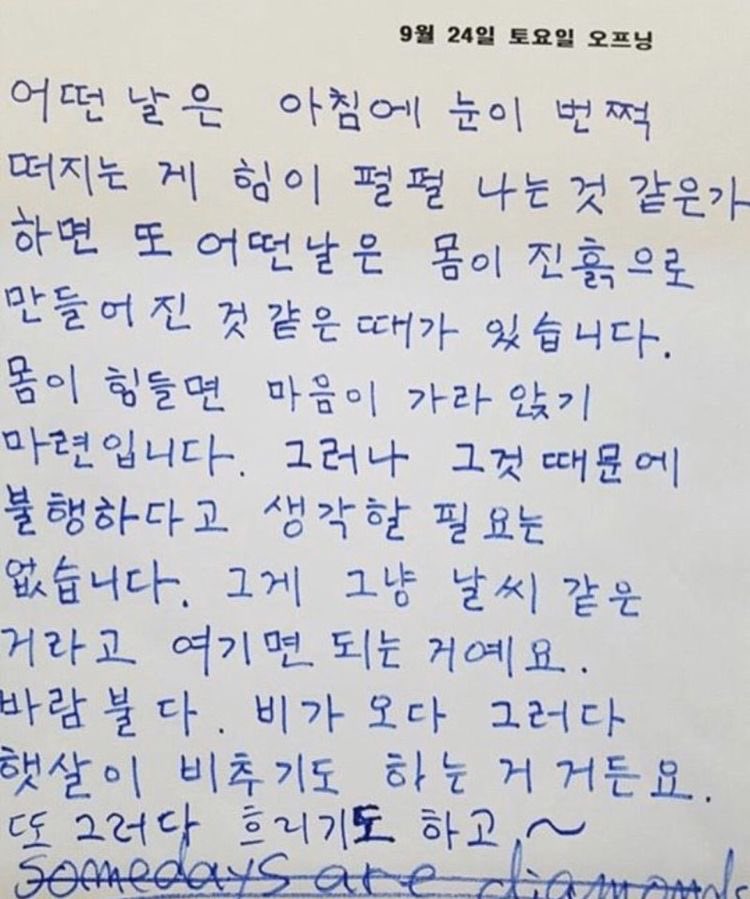 9월 24일 토요일 오프닝
어떤 날은 아침에 눈이 번쩍
떠지는 게 힘이 펄펄 나는 것 같은가
하면 또 어떤날은 몸이 진흙으로
만들어 진 것 같은 때가 있습니다.
몸이 힘들면 마음이 가라 앉기
마련입니다. 그러나 그것 때문에
불행하다고 생각할 필요는
없습니다. 그게 그냥 날씨 같은
거라고 여기면 되는 거예요.
바람 불다. 비가 오다 그러다
햇살이 비추기도 하는 거 거든요.
또 그러다 흐리기도 하고 ~
somedays are diamonds